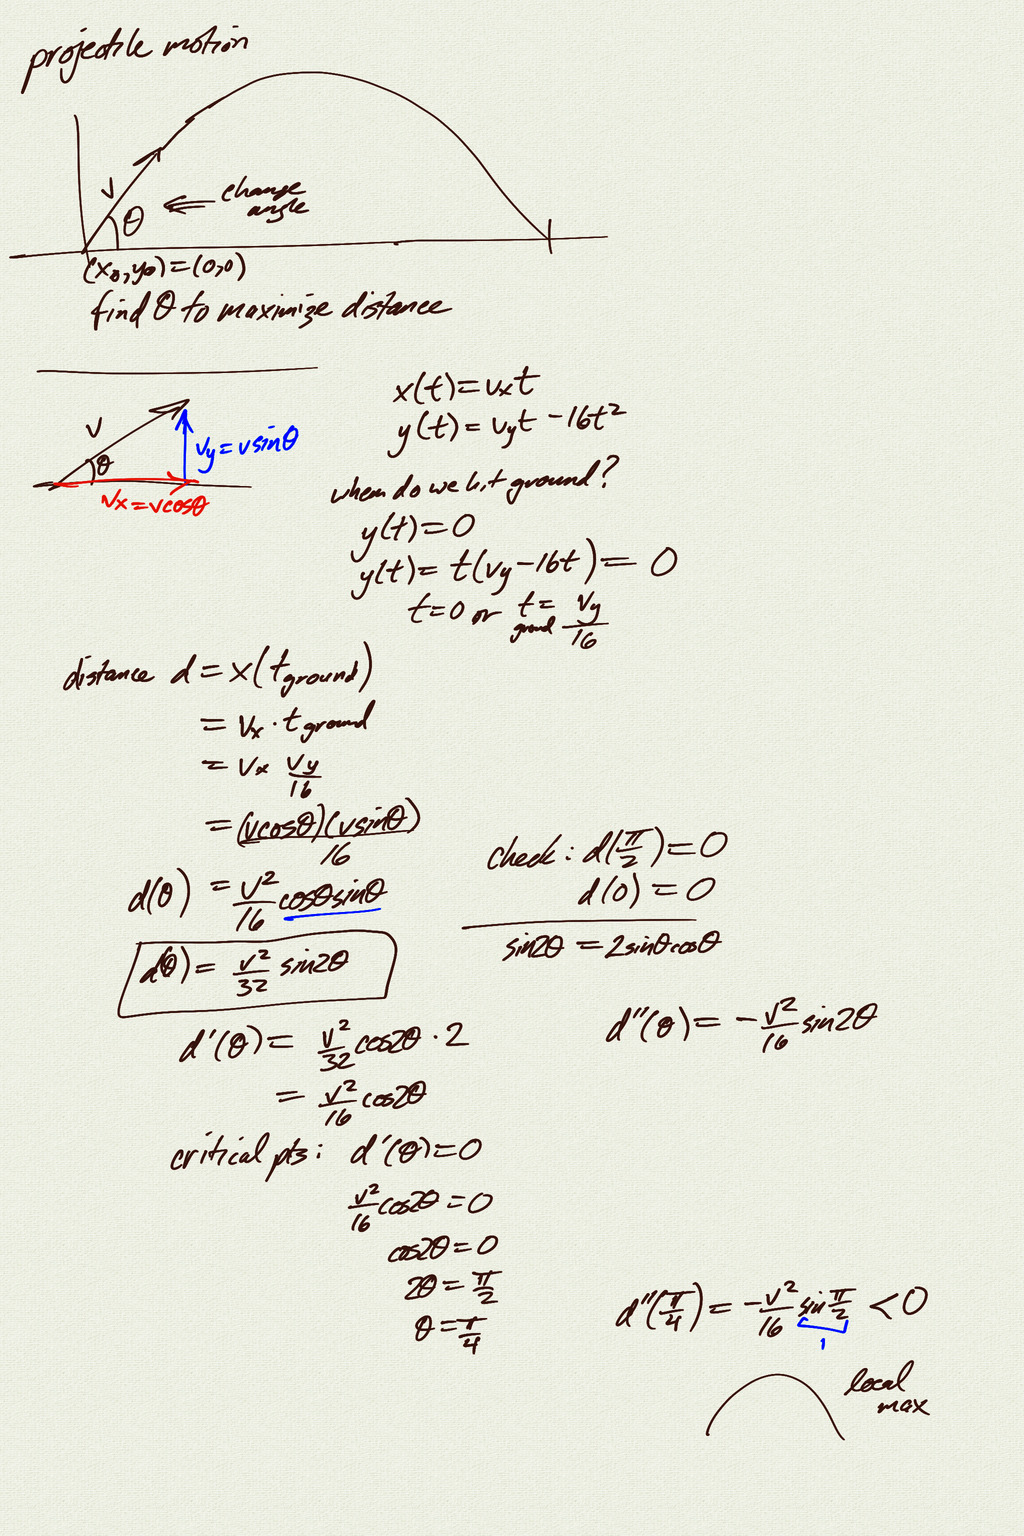 projectile motion
v
θ
⇐ change
angle
(x₀,y₀)=(0,0)
find θ to maximize distance
v
θ
vy=vsinθ
vx=vcosθ
x(t)=vxt
y(t)=vyt-16t²
when do we hit ground?
y(t)=0
y(t)=t(vy-16t)=0
t=0 or t_ground=vy/16
distance d=x(t_ground)
=vx·t_ground
=vx vy/16
=(vcosθ)(vsinθ)/16
d(θ)=v²/16 cosθsinθ
d(θ)=v²/32 sin2θ
check: d(π/2)=0
d(0)=0
sin2θ=2sinθcosθ
d'(θ)=v²/32 cos2θ·2
=v²/16 cos2θ
d''(θ)=-v²/16 sin2θ
critical pts: d'(θ)=0
v²/16 cos2θ=0
cos2θ=0
2θ=π/2
θ=π/4
d''(π/4)=-v²/16 sin π/2 <0
1
local
max